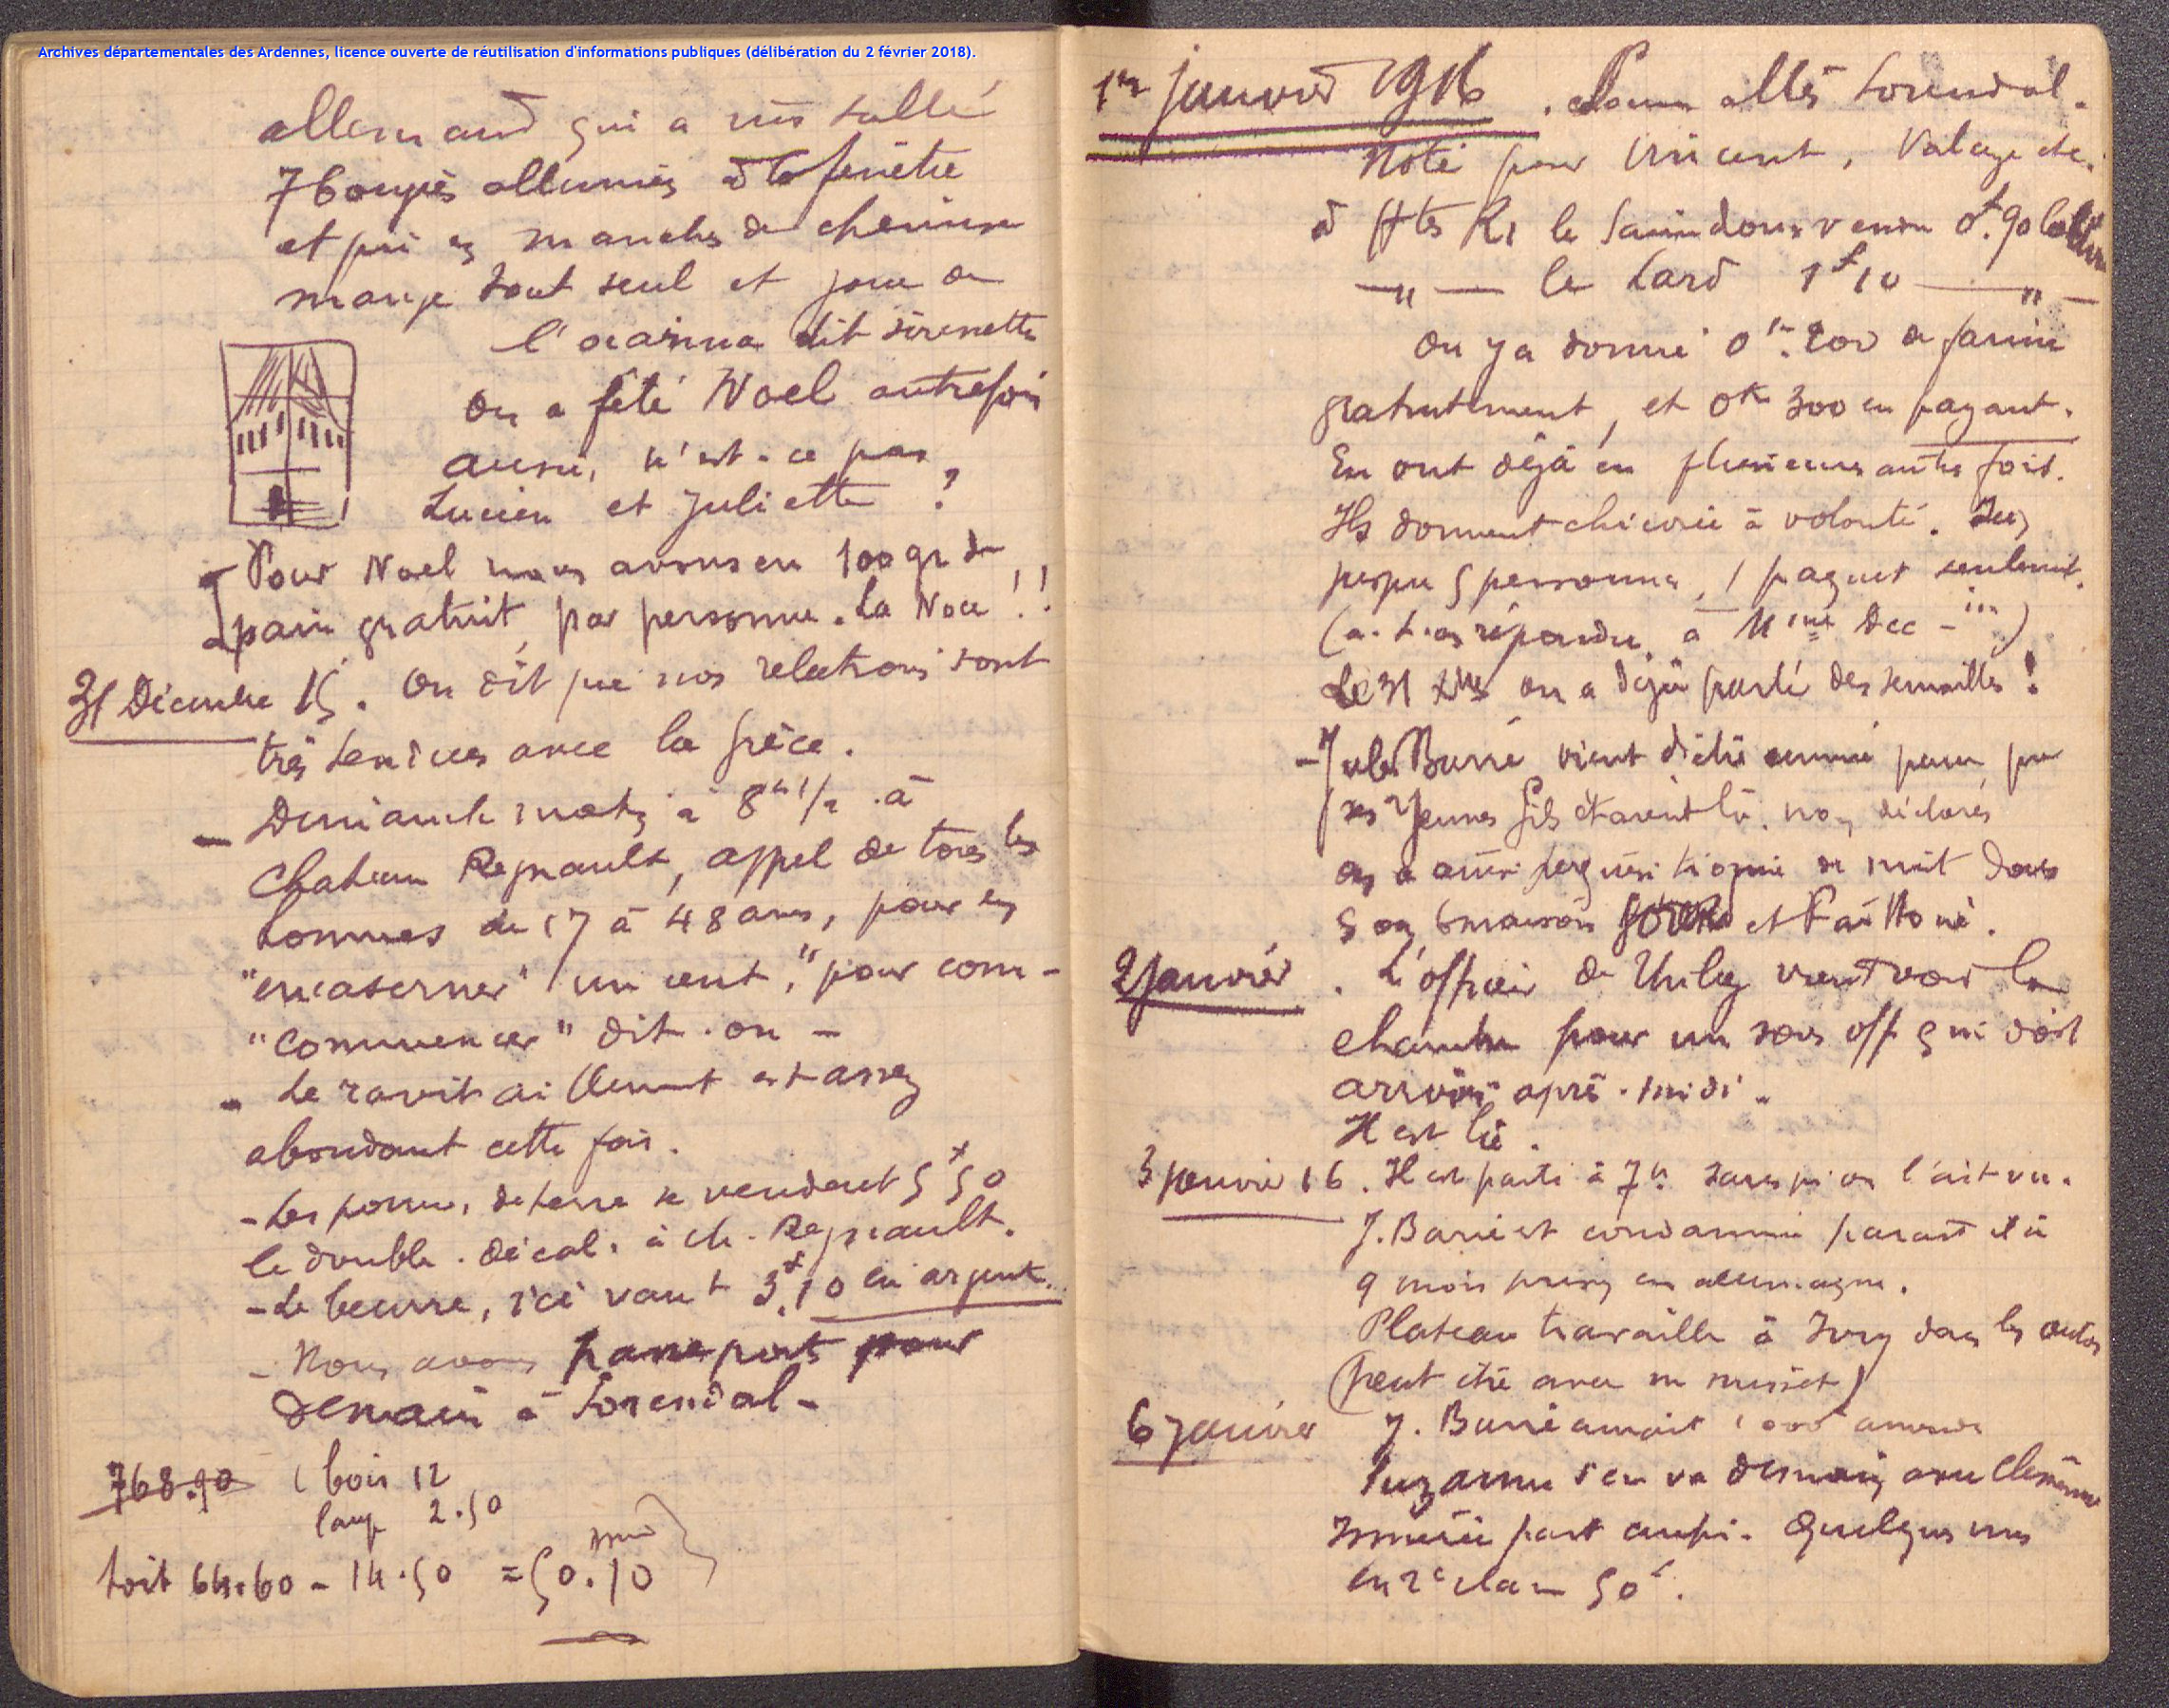 Archives départementales des Ardennes, licence ouverte de réutilisation d'informations publiques (délibération du 2 février 2018).
allemand qui a installé
7 bougies allumées à la fenêtre
et qui en manches de chemise
mange tout seul et joue de
l'ocarina dit sirenette
On a fêté Noel autrefois
aussi, n'est-ce pas
Lucien et Juliette ?
- Pour Noel nous avons eu 100 gr de
pain gratuit, par personne. La Noce !!
31 Décembre 15. On dit que nos relations sont
très tendues avec la Grèce.
- Dimanche matin à 8h 1/2 à
Chateau Regnault, appel de tous les
hommes de 17 à 48 ans, pour en
"encaserner" un cent, "pour com-
"commencer" dit-on -
- Le ravitaillement est assez
abondant cette fois.
- Les pomm. de terre se vendent 5f50
le double. décal. à Ch. Regnault.
- Le beurre, ici vaut 3f.10 en argent.
- Nous avons passeports pour
demain à Sorendal -
768.90 bois 12
2.50
toit 64.60 - 14.50 = 50.10
1er janvier 1916. allés Sorendal.
Noté pour Vincent,
à Htes Rs le Saindoux vendu 0f.90
-"- le Lard 1f10 -"-
On y a donné 0k.200 de farine
gratuitement, et 0k 300 en payant.
En ont déjà eu plusieurs autres fois.
Ils donnent chicorée à volonté. Ici,
jusque 5 personnes, 1 paquet seulement.
Le 31 Xbre on a déjà parlé des semailles !
- Jules Barré vient d'être emmené parce que
ses 2 jeunes fils étaient là, non déclarés
on a aussi perquisitionné de nuit dans
5 ou 6 maisons et
2 janvier. L'officier de vient voir la
chambre pour un sous off qui doit
arriver après-midi.
Il est là.
3 janvier 16. Il est parti à 7h sans qu'on l'ait vu.
J. Barré est condamné parait il à
9 mois prison en allemagne.
Plateau travaille à Ivry dans les autos
(peut être avec
6 janvier J. Barré aurait 1000f amende
Suzanne s'en va demain avec Clémence
part aussi. Quelques uns
en 2e classe 50f.